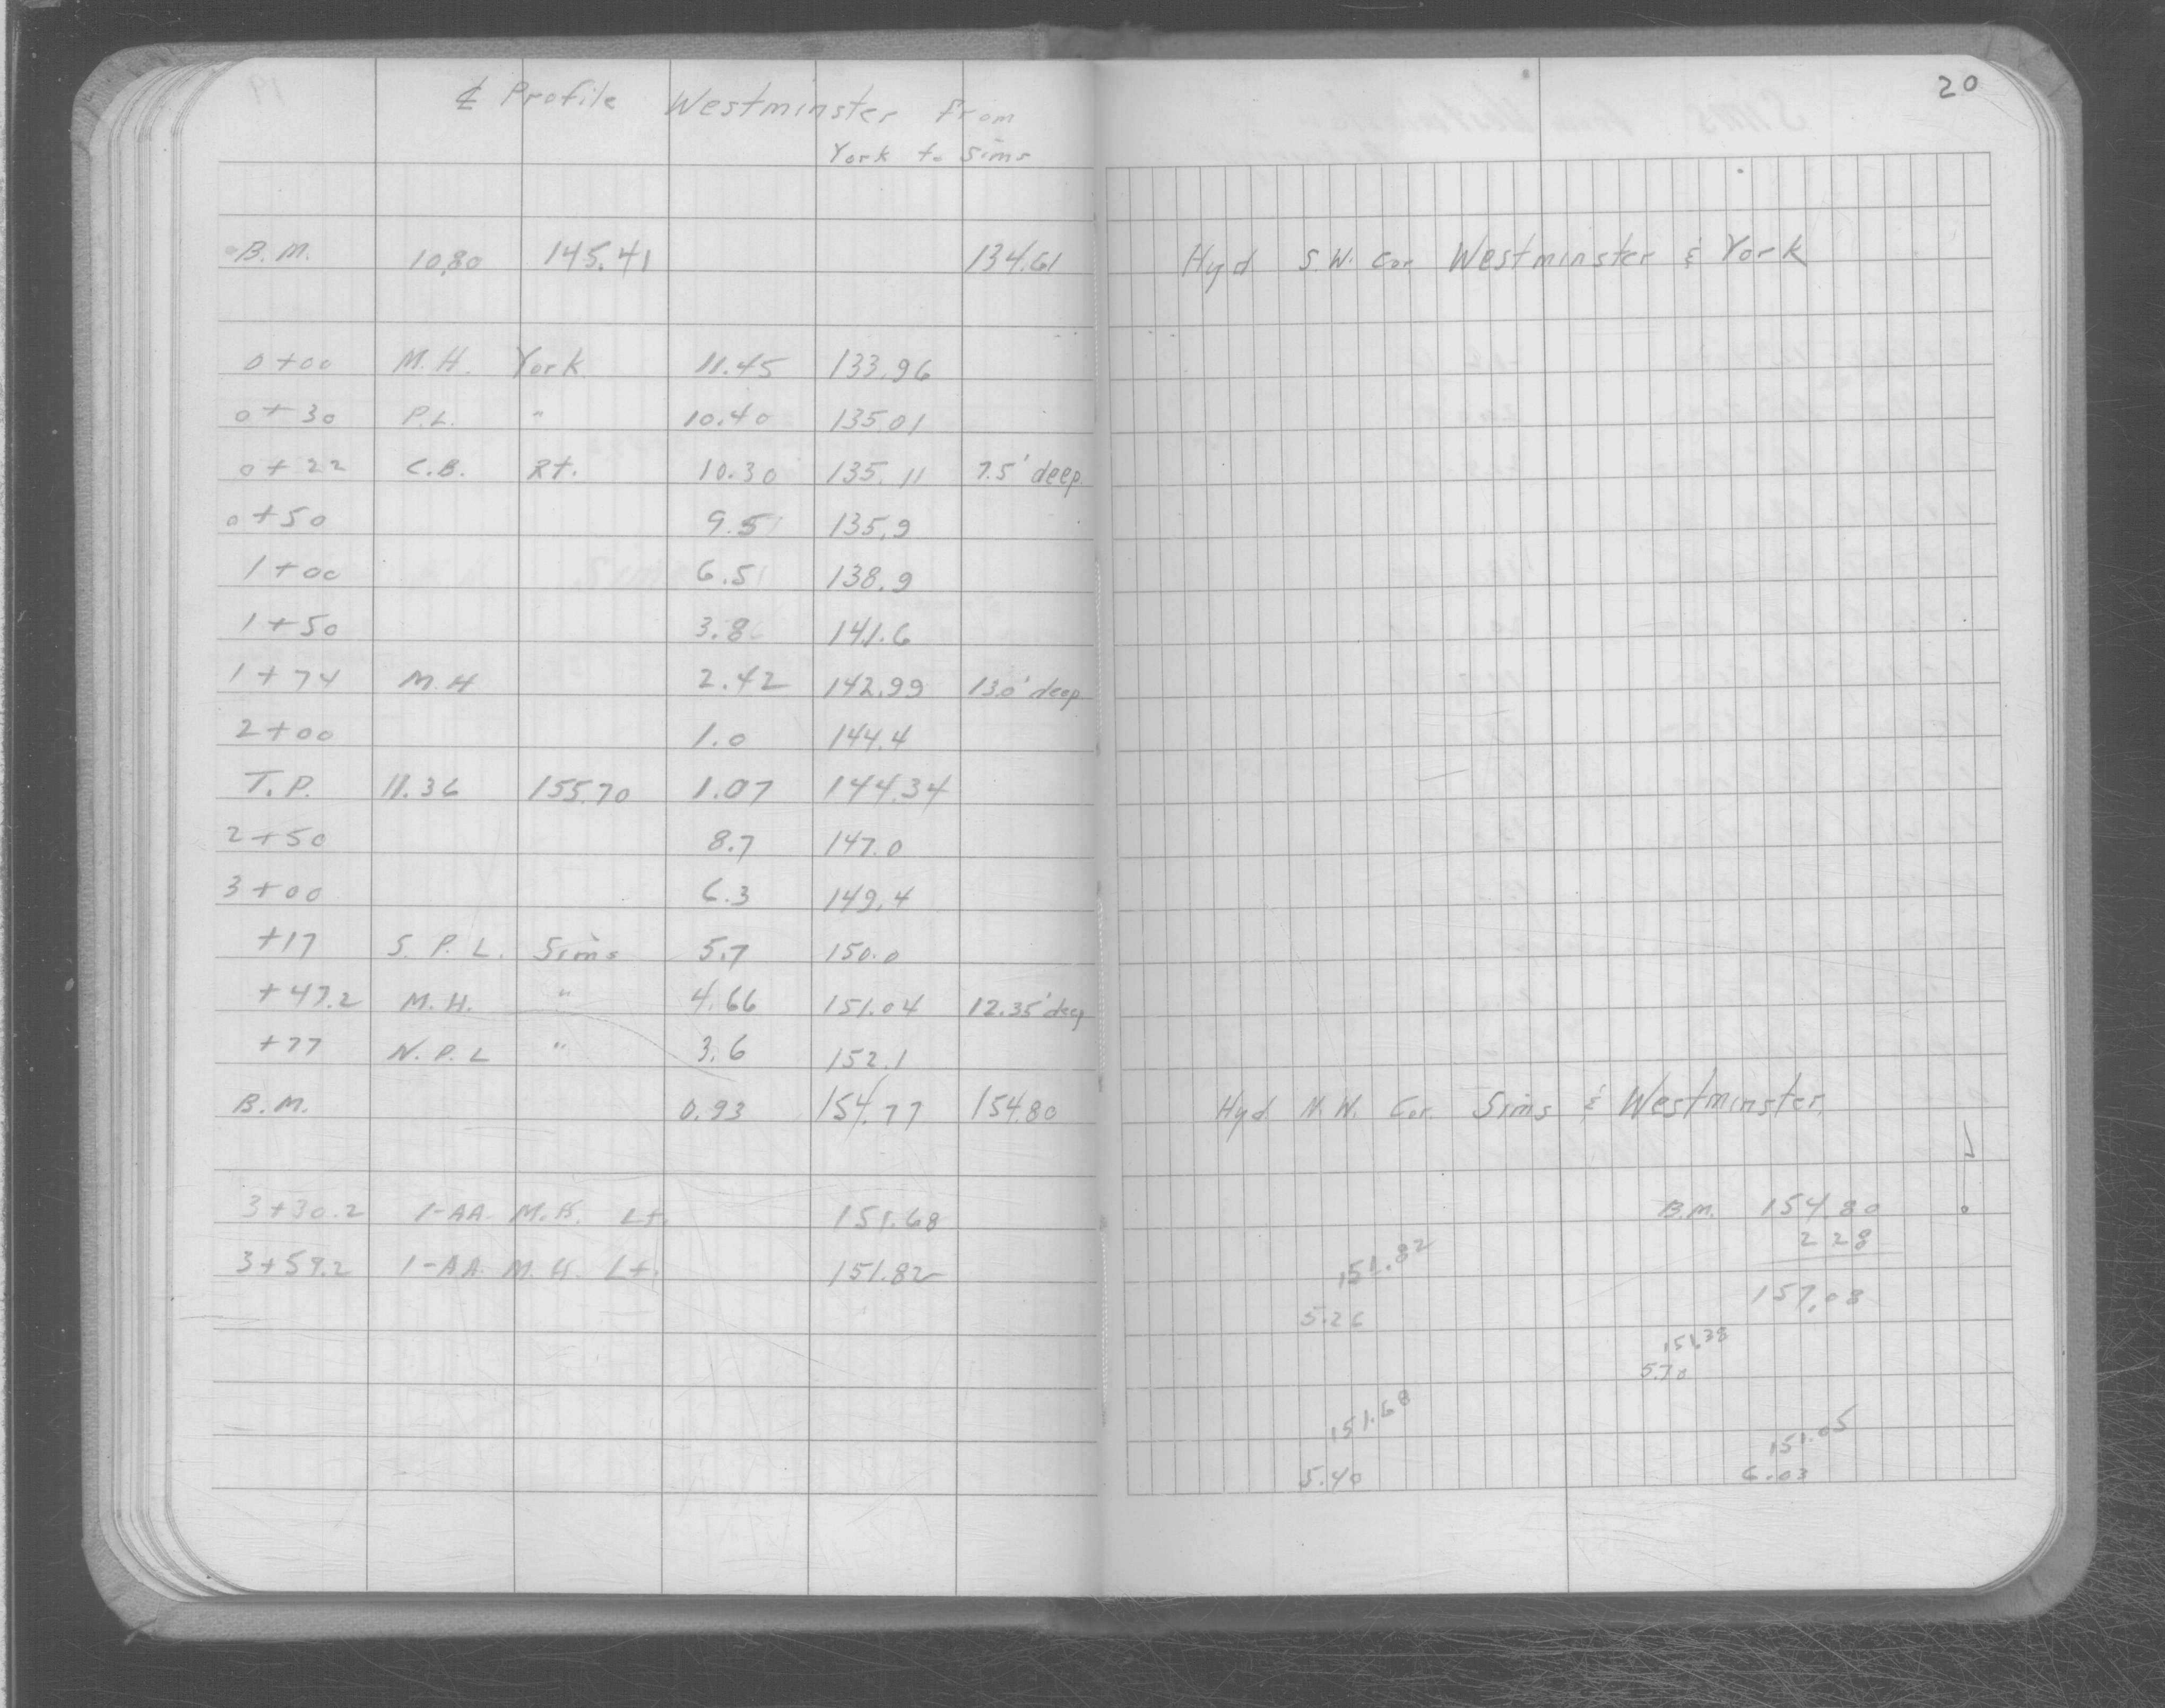 20
℄ Profile Westminster From
York to Sims
B.M. 10.80 145.41 134.61 Hyd S.W. Cor Westminster & York
0+00 M.H. York 11.45 133.96
0+30 P.L. " 10.40 135.01
0+22 C.B. Rt. 10.30 135.11 7.5' deep
0+50 9.5 135.9
1+00 6.5 138.9
1+50 3.8 141.6
1+74 M.H 2.42 142.99 13.0' deep
2+00 1.0 144.4
T.P. 11.36 155.70 1.07 144.34
2+50 8.7 147.0
3+00 6.3 149.4
+17 S.P.L. Sims 5.7 150.0
+47.2 M.H. " 4.66 151.04 12.35' deep
+77 N.P.L " 3.6 152.1
B.M. 0.93 154.77 154.80 Hyd N.W. Cor. Sims & Westminster
3+30.2 1-AA. M.H. Lt. 151.68 B.M. 154.80
2 28
3+59.2 1-AA. M.H. Lt. 151.82 151.82
157.08
5.26
151.38
5.70
151.68
151.05
5.40 6.03